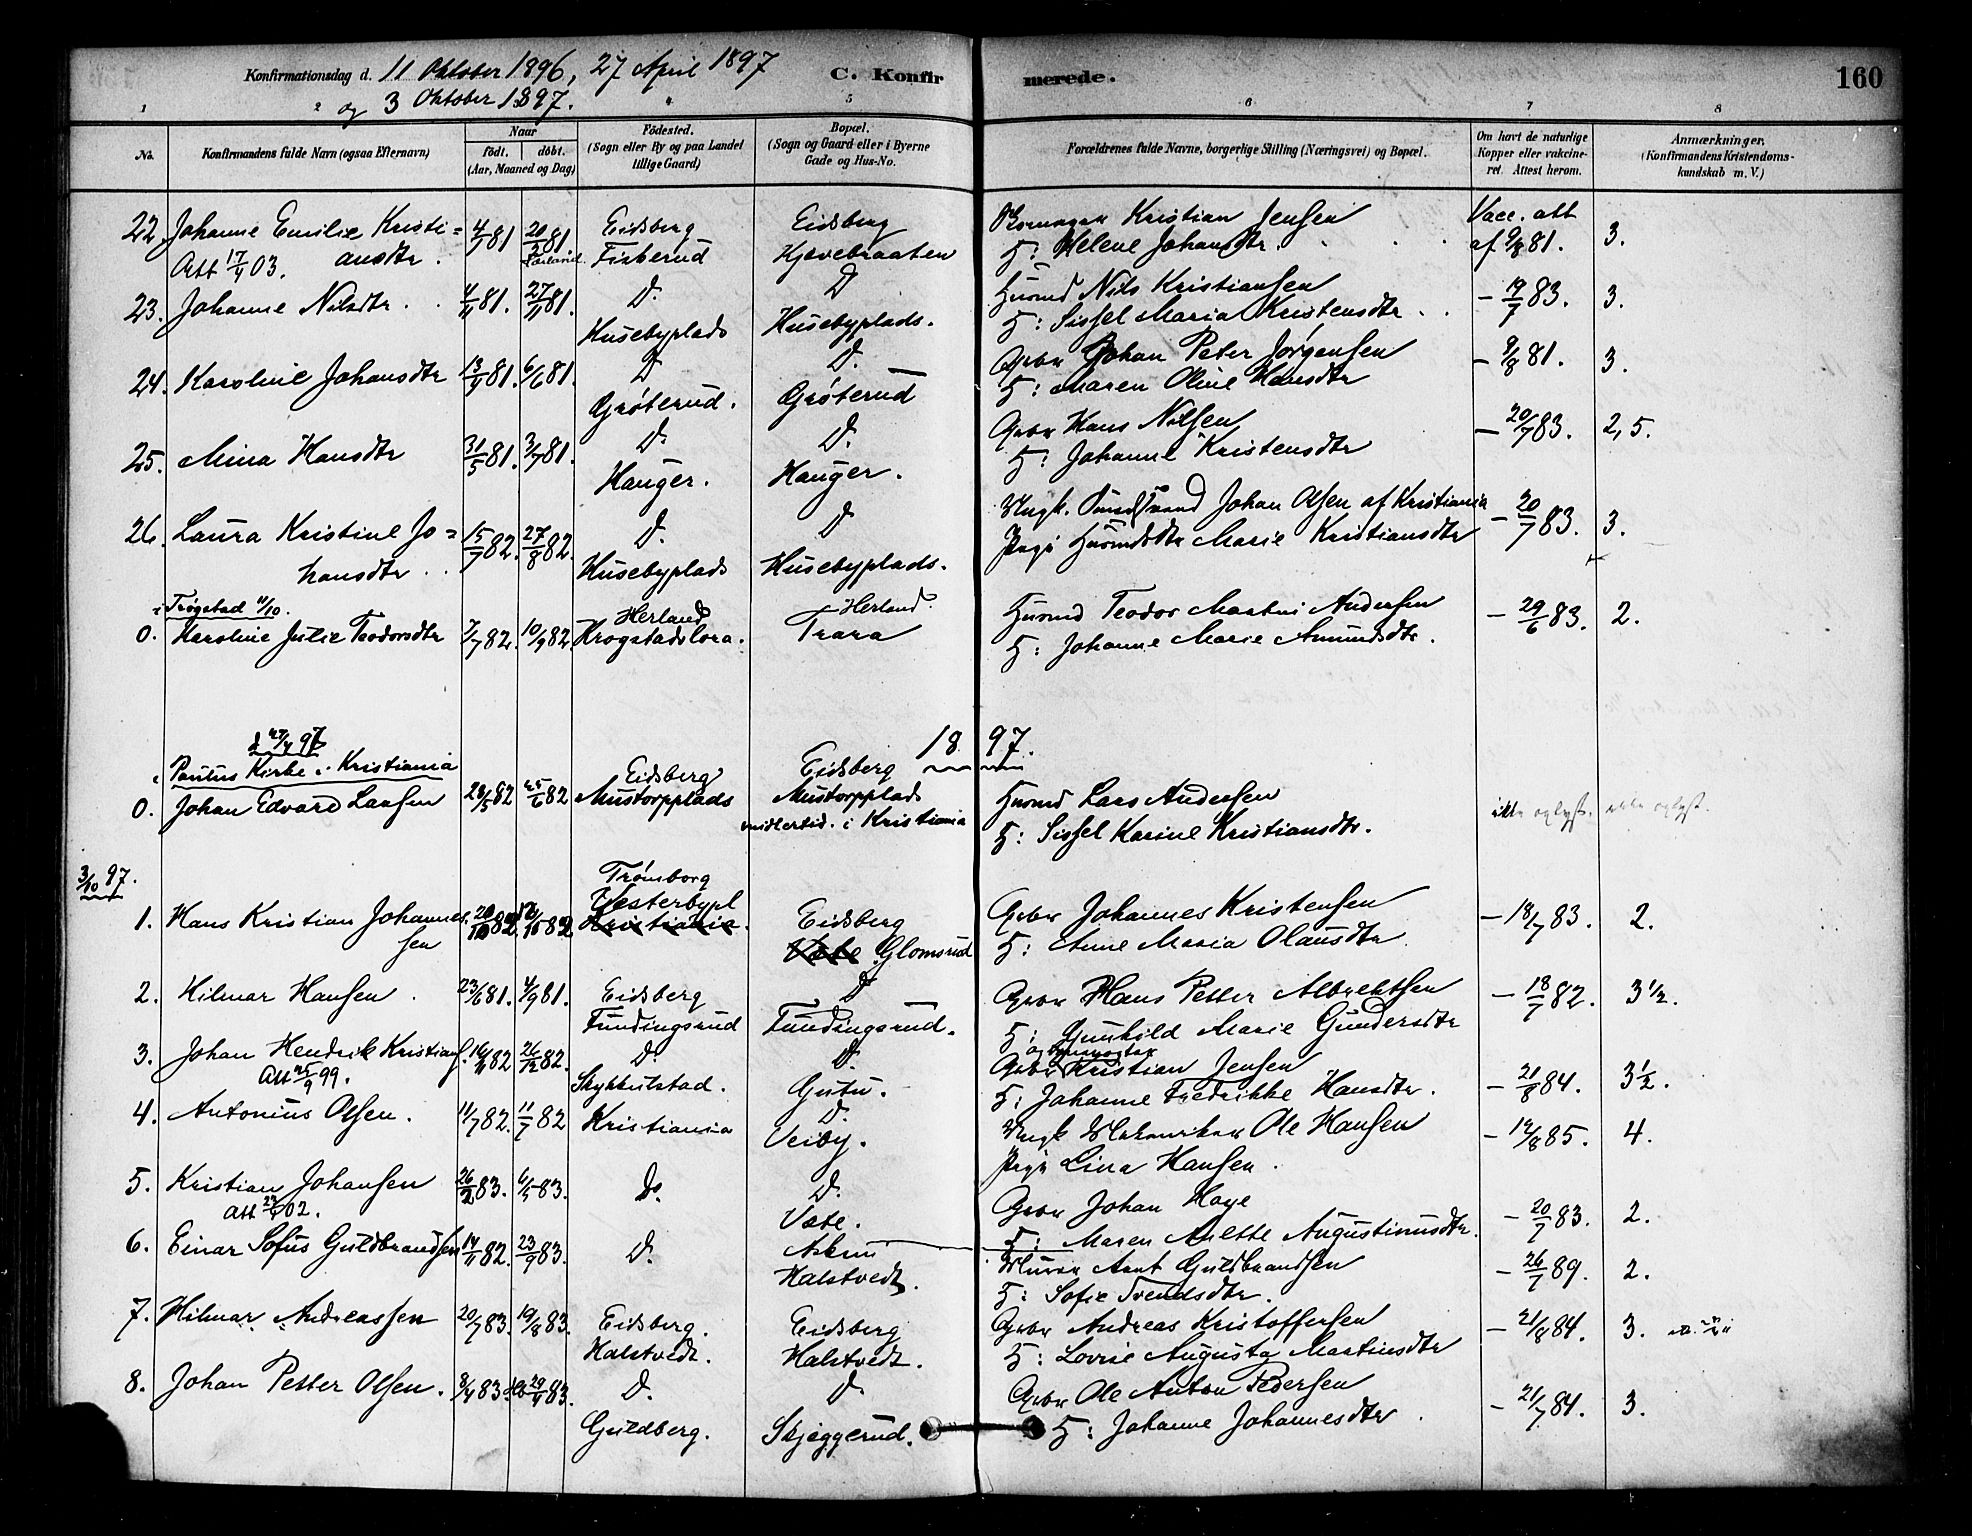 Konfirmationsdag d. 11 Oktober 1896, 27 April 1897 C. Konfirmerede. 160
og 3 Oktober 1897.
1 2 5 6 7 8
No. Konfirmandens fulde Navn (ogsaa Efternavn) Naar födt. döbt. (Aar, Maaned og Dag) Födested. (Sogn eller By og paa Landet tillige Gaard) Bopæl. (Sogn og Gaard eller i Byerne Gade og Hus-No. Forældrenes fulde Navne, borgerlige Stilling (Næringsvei) og Bopæl. Om havt de naturlige Kopper eller vakcineret. Attest herom. Anmærkninger. (Konfirmandens Kristendomskundskab m. V.)
22. Johanne Emilie Kristi= 4/7 81 20/3 81. Eidsberg Eidsberg Kristian Jensen Vacc. att
Att 17/4 03. ansdtr. Fiskerud Kjævebraaten H: Helene Johansdtr. af 9/8 81. 3.
23. Johanne Nilsdtr. 4/11 81. 27/11 81. D. D Husmd Nils Kristiansen - 19/7 83. 3.
Husebyplads Husebyplads. H: Sissel Maria Kristensdtr.
24. Karoline Johansdtr 13/4 81. 6/6 81. D D. Gbr Johan Peter Jørgensen - 9/8 81. 3.
Grøterud. Grøterud H: Maren Oline Hansdtr
25. Mina Hansdtr 31/5 81. 3/7 81. D. D. Gbr Hans Nilsen - 20/7 83. 2,5.
Hauger. Hauger. H: Johanne Kristensdtr
26. Laura Kristine Jo= 15/7 82. 27/8 82. D. D Ungk. Johan Olsen af Kristiania - 20/7 83. 3.
hansdtr. Husebyplads Husebyplads. Pige Husmdsdtr Marie Kristiansdtr
i Trøgstad 11/10. Herland Herland.
0. Karoline Julie Teodorsdtr 7/7 82. 10/9 82. Krogstadslora. Trara Husmd Teodor Martin Andersen - 29/6 83. 2.
H: Johanne Marie Amundsdtr.
d 27/4 97 1897.
i Paulus Kirke i Kristiania Eidsberg Eidsberg
0. Johan Edvard Larsen 28/5 82 25/6 82 Mustorpplads Mustorpplads Husmd Lars Andersen ikke oplyst. ikke oplyst.
midlertid. i Kristiania H: Sissel Karine Kristiansdtr.
3/10 97. Trømborg
1. Hans Kristian Johannes Vesterbypl Eidsberg Gbr Johannes Kristensen - 18/7 83. 2.
sen Kristiania. Væte Glomsrud H: Anne Maria Olausdtr
2. Hilmar Hansen. 23/6 81. 4/9 81. Eidsberg D Gbr Hans Petter Albrektsen - 18/7 82. 3 1/2.
Fundingsrud Fundingsrud. H: Gunhild Marie Gundersdtr
3. Johan Hendrik Kristians. 16/11 82 26/12 82. D. D. Gbr Kristian Jensen - 21/8 84. 3 1/2.
Att 25/9 99. Skykkelstad. Gutu. H: Johanne Fredrikke Hansdtr.
4. Antonius Olsen. 11/7 82. 11/7 82 Kristiania D. Ungk Ole Hansen - 12/8 85. 4.
Veiby. Pige Lina Hansen.
5. Kristian Johansen 26/2 83. 6/5 83. D. D. Gbr Johan Haye - 20/7 83. 2.
Att 02. Væte. H: Maren Anette Augustinusdtr.
6. Einar Sofus Guldbrandsen 14/11 82. 23/9 83. D. Askim Murer Arnt Guldbrandsen - 26/7 89. 2.
Halstvedt. H: Sofie Svendsdtr.
7. Hilmar Andreassen 20/7 83. 19/8 83. Eidsberg. Eidsberg Gbr Andreas Kristoffersen - 21/8 84. 3.
Halstvedt. Halstvedt. H: Lovise Augusta Martinsdtr
8. Johan Petter Olsen. 8/4 83. 29/4 83. D. D Gbr Ole Anton Pedersen - 21/7 84. 3.
Guldberg. Skjeggerud. H: Johanne Johannesdtr.